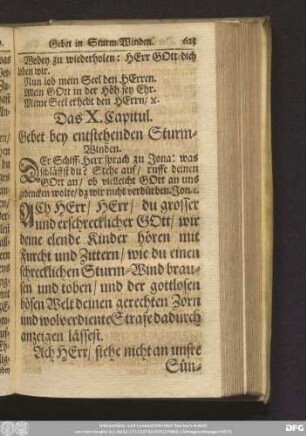 Gebet in Sturm-Winden. 623
Wobey zu wiederholen: HErr GOtt/dich
loben wir.
Nun lob mein Seel den HErren.
Allein GOtt in der Höh sey Ehr.
Meine Seel erhebt den HErrn/ ꝛc.
Das X. Capitul.
Gebet bey entstehenden Sturm-
Winden.
DEr Schiff-Herr sprach zu Jona: was
schläffst du? Stehe auf/ ruffe deinen
GOtt an/ ob vielleicht GOtt an uns
gedencken wolte/ dz wir nicht verdürben. Jon. 1.
ACh HErr/ HErr/ du grosser
und erschrecklicher GOtt/ wir
deine elende Kinder hören mit
Furcht und Zittern/ wie du einen
schrecklichen Sturm-Wind brau-
sen und toben/ und der gottlosen
bösen Welt deinen gerechten Zorn
und wolverdiente Strafe dadurch
anzeigen lässest.
Ach HErr/ siehe nicht an unsre
Sün-